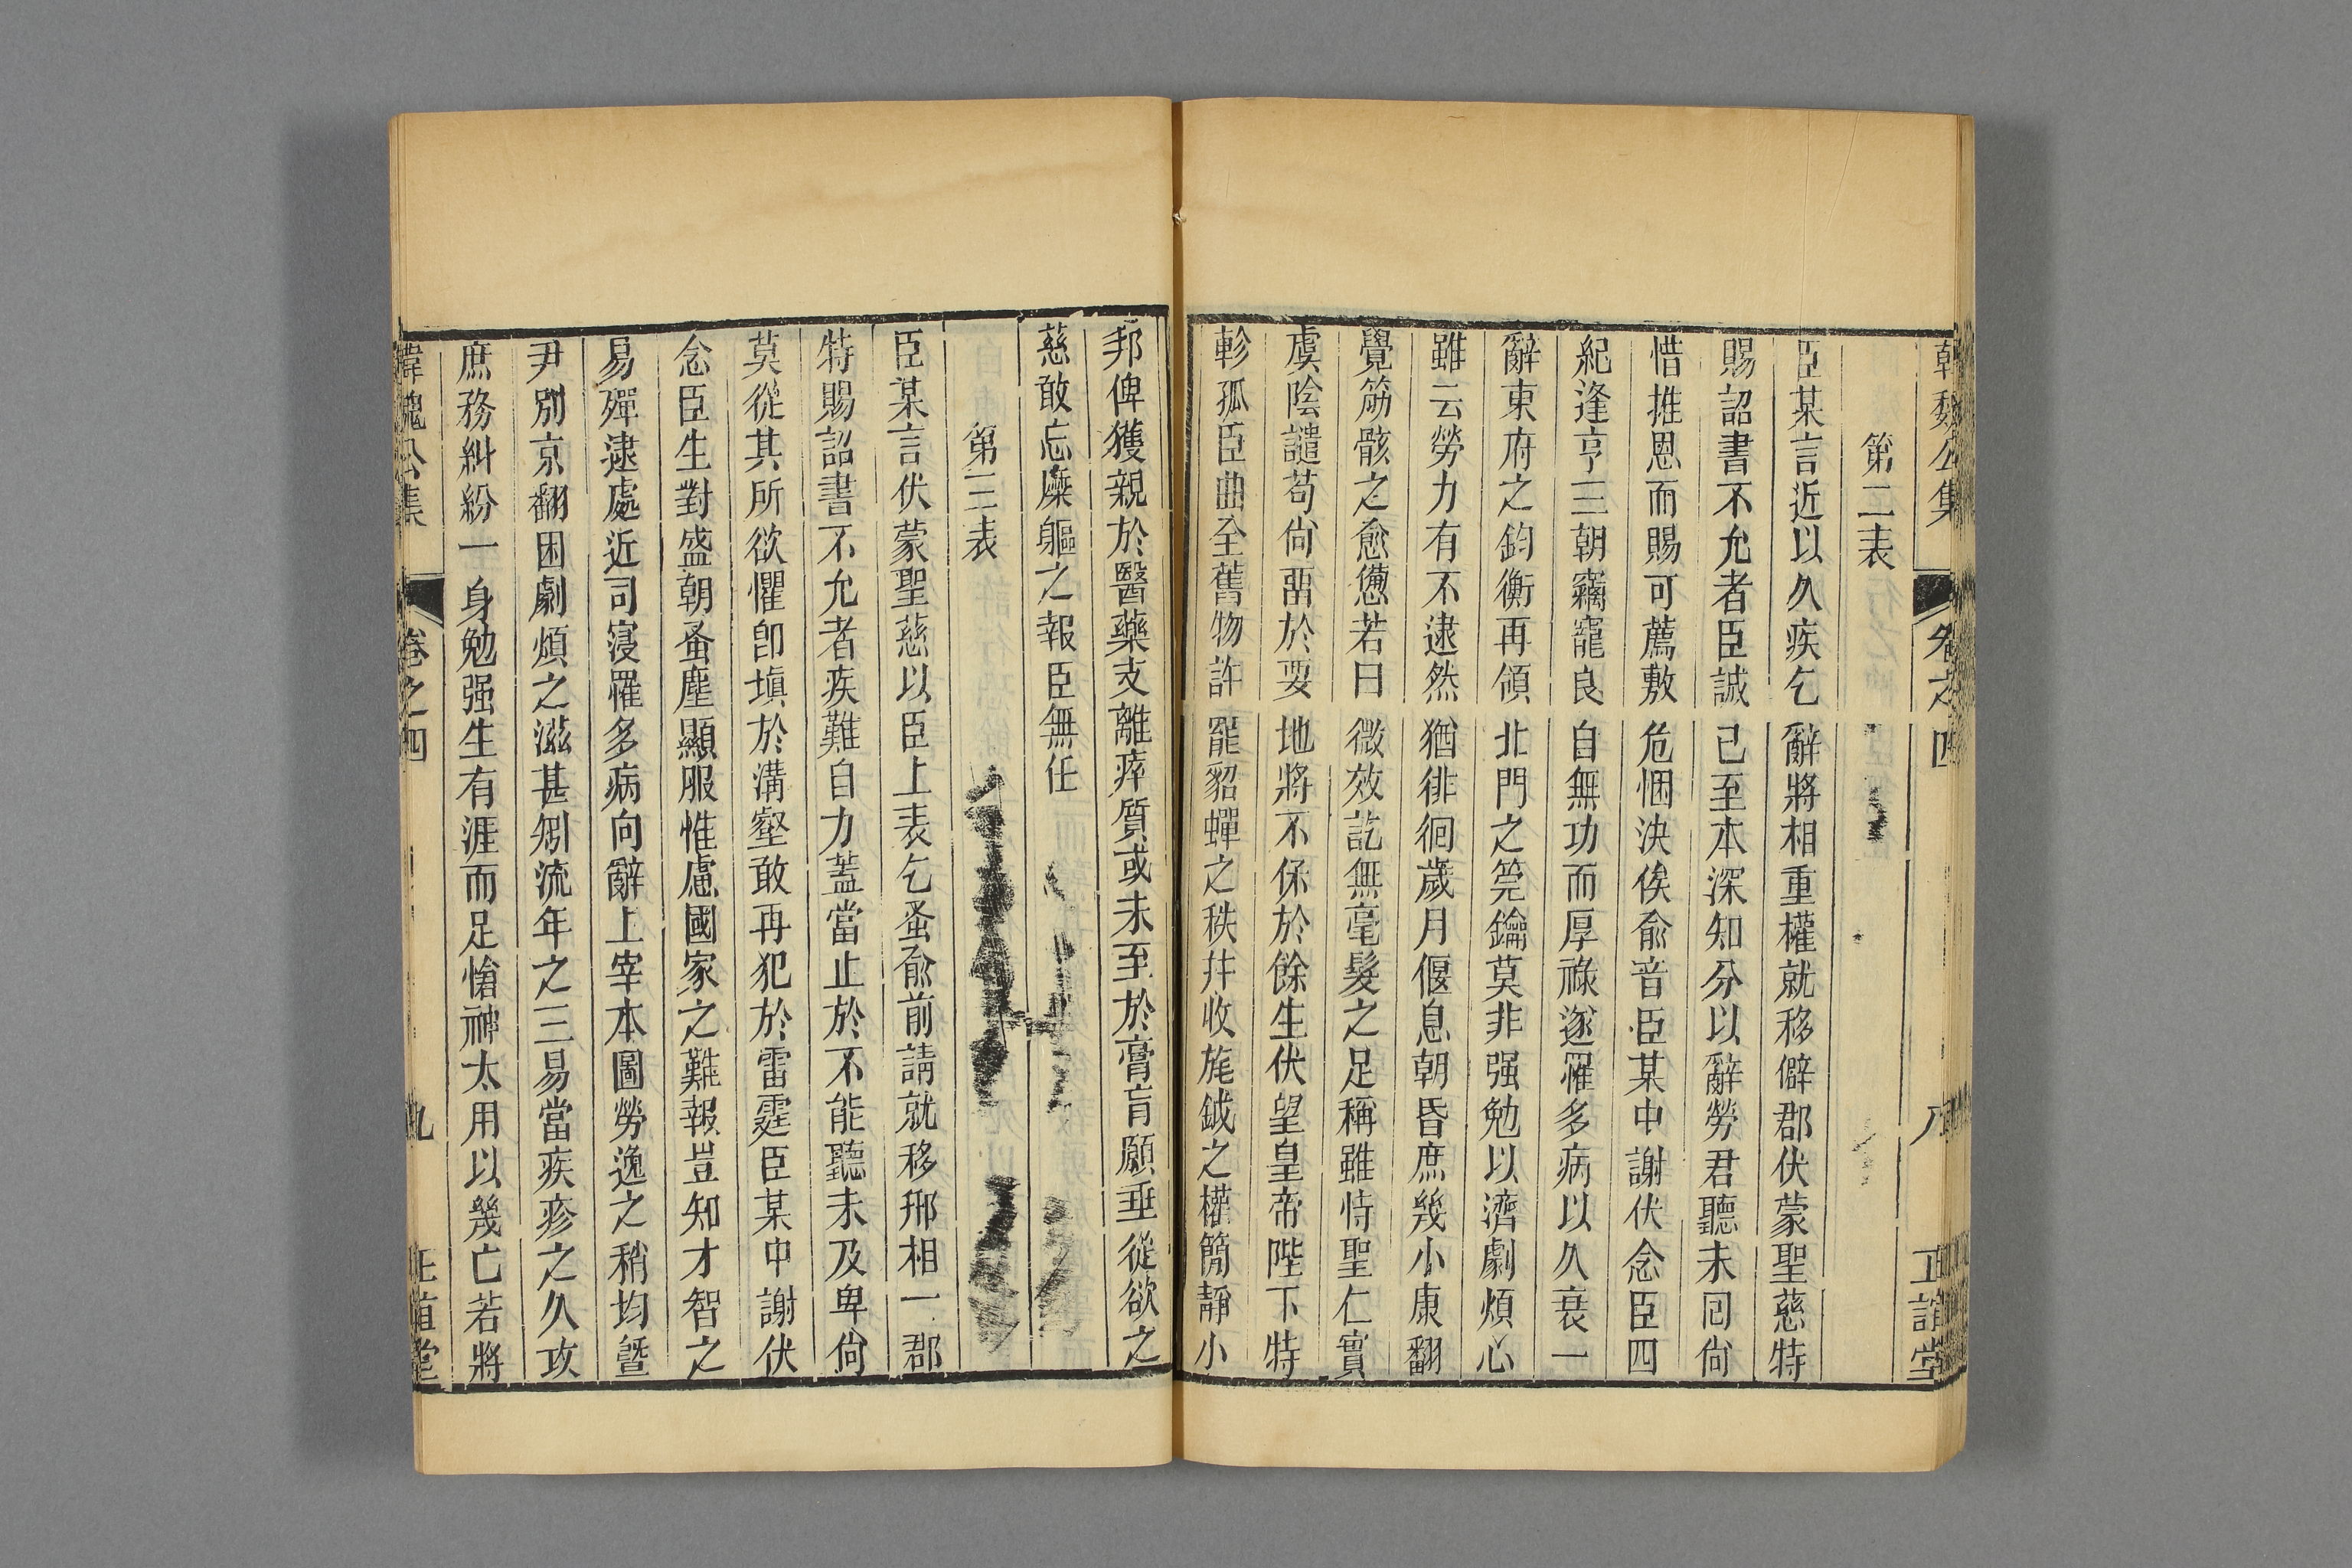 韓魏公集 卷之四 八 正誼堂
第二表
臣某言近以久疾乞辭將相重權就移僻郡伏蒙聖慈特
賜詔書不允者臣誠已至本深知分以辭勞君聽未囘尙
惜推恩而賜可薦敷危悃決俟俞音臣某中謝伏念臣四
紀逢亨三朝竊寵良自無功而厚祿遂罹多病以久衰一
辭東府之鈞衡再領北門之筦鑰莫非强勉以濟劇煩心
雖云勞力有不逮然猶徘徊歲月偃息朝昏庶幾小康翻
覺筋骸之愈憊若曰微效訖無毫髮之足稱雖恃聖仁實
虞陰譴苟尙畱於要地將不保於餘生伏望皇帝陛下特
軫孤臣曲全舊物許罷貂蟬之秩幷收旄鉞之權簡靜小
邦俾獲親於醫藥支離瘁質或未至於膏肓願垂從欲之
慈敢忘糜軀之報臣無任
第三表
臣某言伏蒙聖慈以臣上表乞蚤俞前請就移邢相一郡
特賜詔書不允者疾難自力蓋當止於不能聽未及卑尙
莫從其所欲懼卽塡於溝壑敢再犯於雷霆臣某中謝伏
念臣生對盛朝蚤塵顯服惟慮國家之難報豈知才智之
易殫逮處近司寖罹多病向辭上宰本圖勞逸之稍均曁
尹別京翻困劇煩之滋甚矧流年之三易當疾疹之久攻
庶務糾紛一身勉强生有涯而足愴神太用以幾亡若將
韓魏公集 卷之四 九 正誼堂